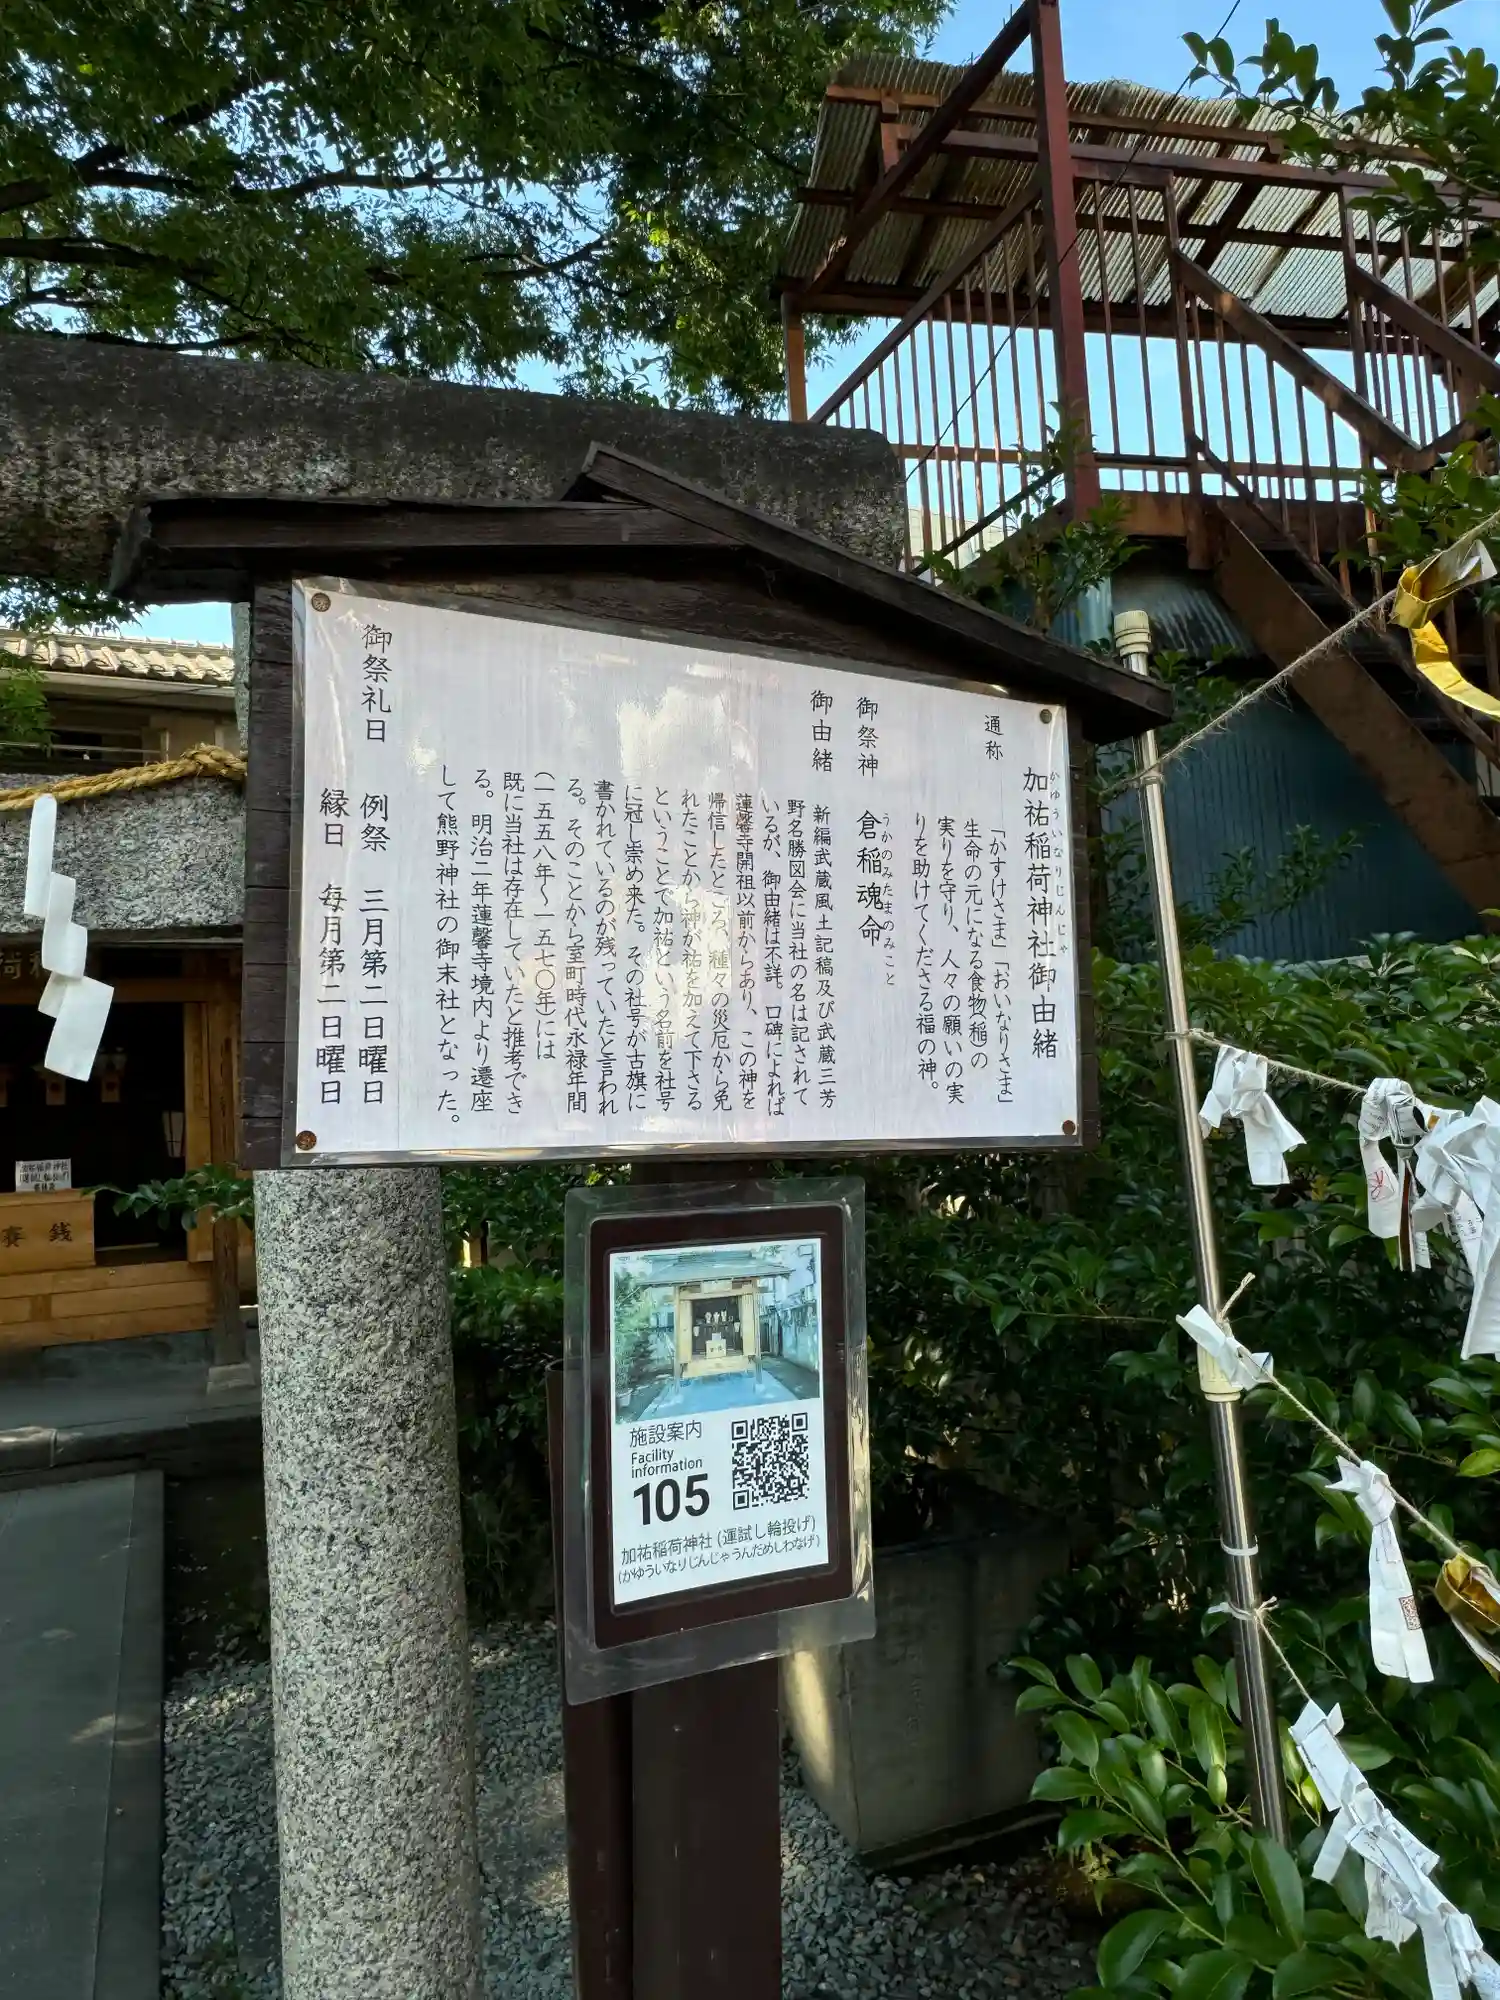 加祐稲荷神社御由緒
かゆういなりじんじゃ
通称
「かすけさま」「おいなりさま」
生命の元になる食物(稲)の
実りを守り、人々の願いの実
りを助けてくださる福の神。
御祭神 倉稲魂命
うかのみたまのみこと
御由緒
新編武蔵風土記稿及び武蔵三芳
野名勝図会に当社の名は記されて
いるが、御由緒は不詳。口碑によれば
蓮馨寺開祖以前からあり、この神を
帰信したところ、種々の災厄から免
れたことから神が祐を加えて下さる
ということで加祐という名前を社号
に冠し崇め来た。その社号が古旗に
書かれているのが残っていたと言われ
る。そのことから室町時代永禄年間
(一五五八年〜一五七〇年)には
既に当社は存在していたと推考でき
る。明治二年蓮馨寺境内より遷座
して熊野神社の御末社となった。
御祭礼日 例祭 三月第二日曜日
縁日 毎月第二日曜日
施設案内
Facility
information
105
加祐稲荷神社(運試し輪投げ)
(かゆういなりじんじゃうんだめしわなげ)
賽銭